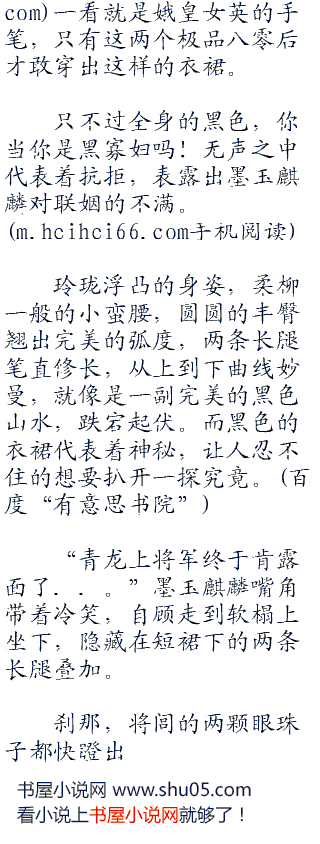 com)一看就是娥皇女英的手
笔，只有这两个极品八零后
才敢穿出这样的衣裙。
只不过全身的黑色，你
当你是黑寡妇吗！无声之中
代表着抗拒，表露出墨玉麒
麟对联姻的不满。
(m.hcihci66.com手机阅读)
玲珑浮凸的身姿，柔柳
一般的小蛮腰，圆圆的丰臀
翘出完美的弧度，两条长腿
笔直修长，从上到下曲线妙
曼，就像是一副完美的黑色
山水，跌宕起伏。而黑色的
衣裙代表着神秘，让人忍不
住的想要扒开一探究竟。(百
度“有意思书院”)
“青龙上将军终于肯露
面了．．．。”墨玉麒麟嘴角
带着冷笑，自顾走到软榻上
坐下，隐藏在短裙下的两条
长腿叠加。
刹那，将闾的两颗眼珠
子都快瞪出
书屋小说网 www.shu05.com
看小说上书屋小说网就够了！